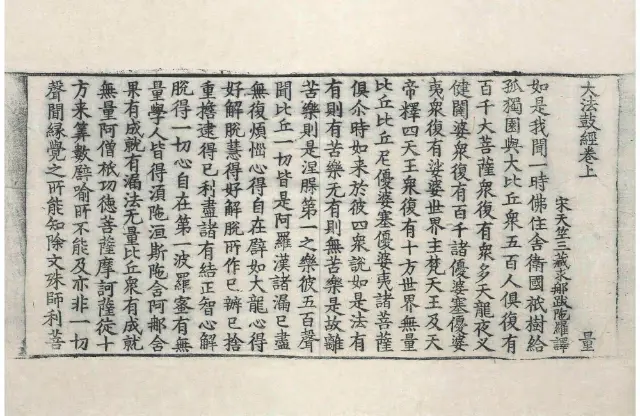 大法鼓經卷上
宋天竺三藏求那跋陁羅譯 量
如是我聞一時佛住舍衛國祇樹給
孤獨園與大比丘衆五百人俱復有
百千大菩薩衆復有衆多天龍夜叉
健闥婆衆復有百千諸優婆塞優婆
夷衆復有娑婆世界主梵天王及天
帝釋四天王衆復有十方世界無量
比丘比丘尼優婆塞優婆夷諸菩薩
俱尒時如來於彼四衆說如是法有
有則有苦樂无有則無苦樂是故離
苦樂則是涅槃第一之樂彼五百聲
聞比丘一切皆是阿羅漢諸漏已盡
無復煩惱心得自在譬如大龍心得
好解脫慧得好解脫所作已辦已捨
重擔逮得己利盡諸有結正智心解
脫得一切心自在第一波羅蜜有無
量學人皆得湏陁洹斯陁含阿那含
果有成就有漏法无量比丘衆有成就
無量阿僧祇功德菩薩摩訶薩從十
方來筭數譬喻所不能及亦非一切
聲聞緣覺之所能知除文殊師利菩